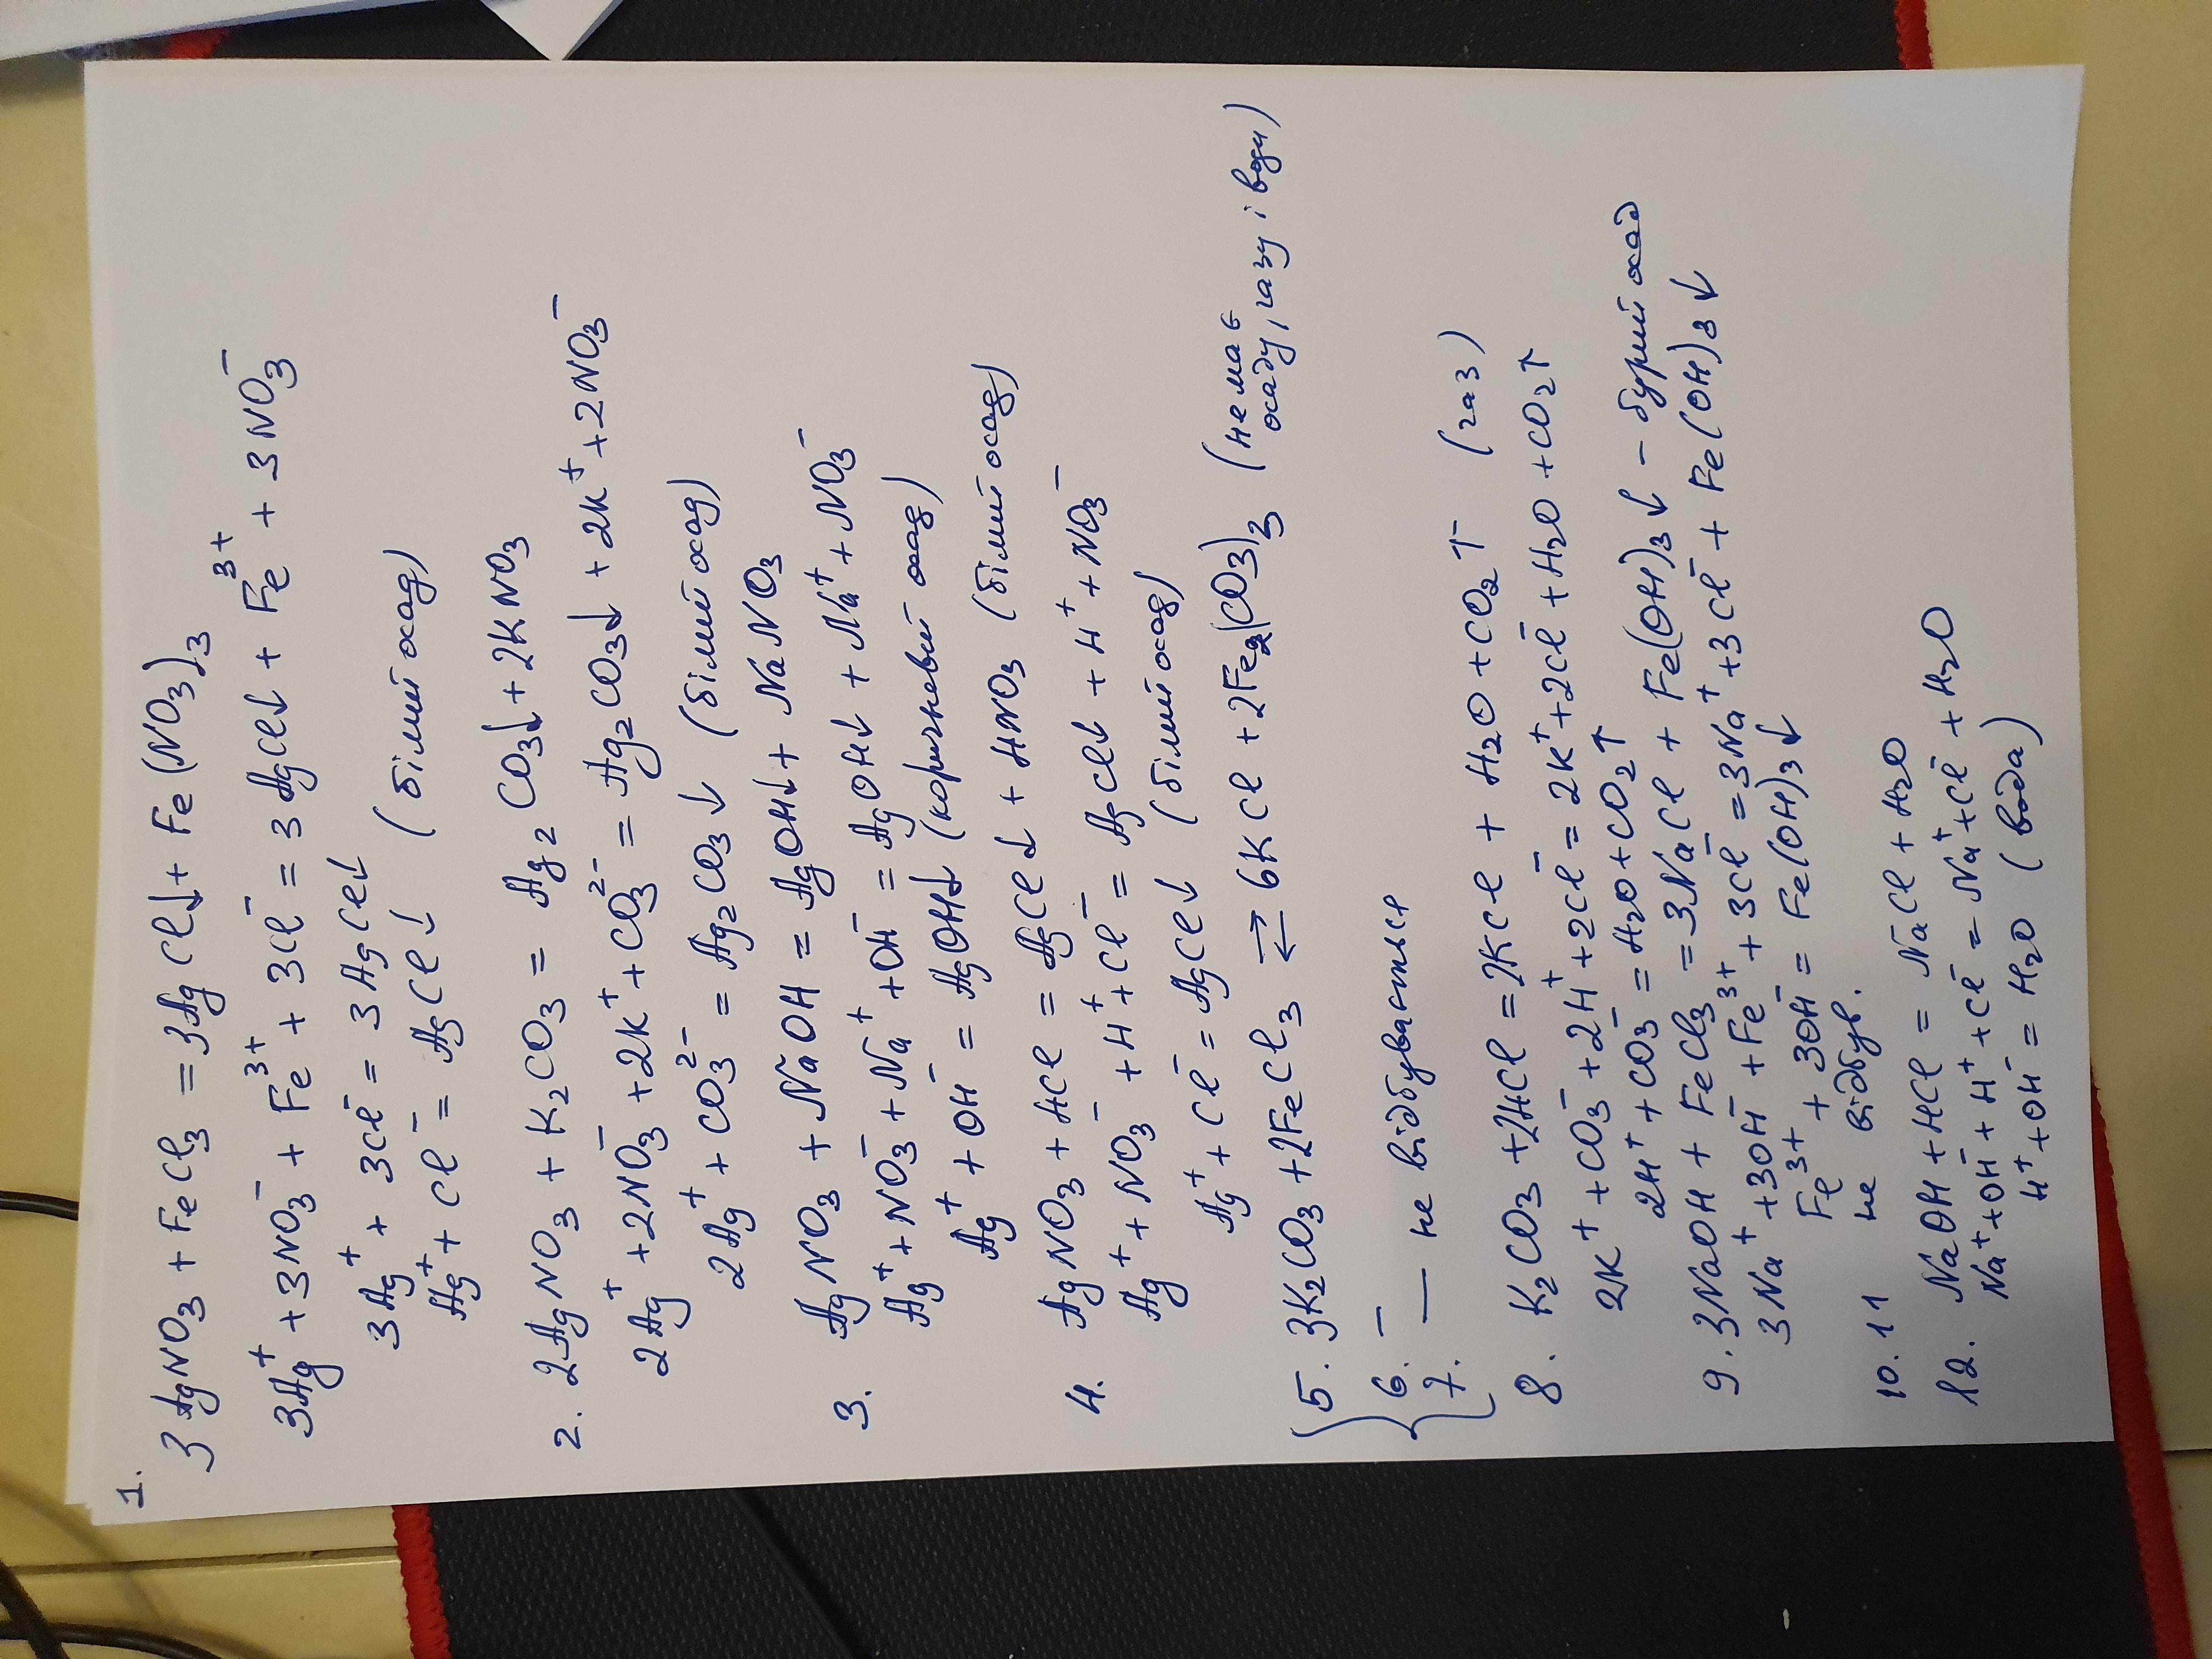 1.
3AgNO₃ + FeCl₃ = 3AgCl↓ + Fe(NO₃)₃
3Ag⁺ + 3NO₃⁻ + Fe³⁺ + 3Cl⁻ = 3AgCl↓ + Fe³⁺ + 3NO₃⁻
3Ag⁺ + 3Cl⁻ = 3AgCl↓
Ag⁺ + Cl⁻ = AgCl↓ (білий осад)
2. 2AgNO₃ + K₂CO₃ = Ag₂CO₃↓ + 2KNO₃
2Ag⁺ + 2NO₃⁻ + 2K⁺ + CO₃²⁻ = Ag₂CO₃↓ + 2K⁺ + 2NO₃⁻
2Ag⁺ + CO₃²⁻ = Ag₂CO₃↓ (білий осад)
3. AgNO₃ + NaOH = AgOH↓ + NaNO₃
Ag⁺ + NO₃⁻ + Na⁺ + OH⁻ = AgOH↓ + Na⁺ + NO₃⁻
Ag⁺ + OH⁻ = AgOH↓ (коричневий осад)
4. AgNO₃ + HCl = AgCl↓ + HNO₃ (білий осад)
Ag⁺ + NO₃⁻ + H⁺ + Cl⁻ = AgCl↓ + H⁺ + NO₃⁻
Ag⁺ + Cl⁻ = AgCl↓ (білий осад)
5. 3K₂CO₃ + 2FeCl₃ ⇄ 6KCl + 2Fe₂(CO₃)₃ (немає осаду, газу і води)
6. –
7. — не відбувається
8. K₂CO₃ + 2HCl = 2KCl + H₂O + CO₂↑ (газ)
2K⁺ + CO₃⁻ + 2H⁺ + 2Cl⁻ = 2K⁺ + 2Cl⁻ + H₂O + CO₂↑
2H⁺ + CO₃⁻ = H₂O + CO₂↑
9. 3NaOH + FeCl₃ = 3NaCl + Fe(OH)₃↓ – бурий осад
3Na⁺ + 3OH⁻ + Fe³⁺ + 3Cl⁻ = 3Na⁺ + 3Cl⁻ + Fe(OH)₃↓
Fe³⁺ + 3OH⁻ = Fe(OH)₃↓
10. 11 не відбув.
12. NaOH + HCl = NaCl + H₂O
Na⁺ + OH⁻ + H⁺ + Cl⁻ = Na⁺ + Cl⁻ + H₂O
H⁺ + OH⁻ = H₂O (вода)